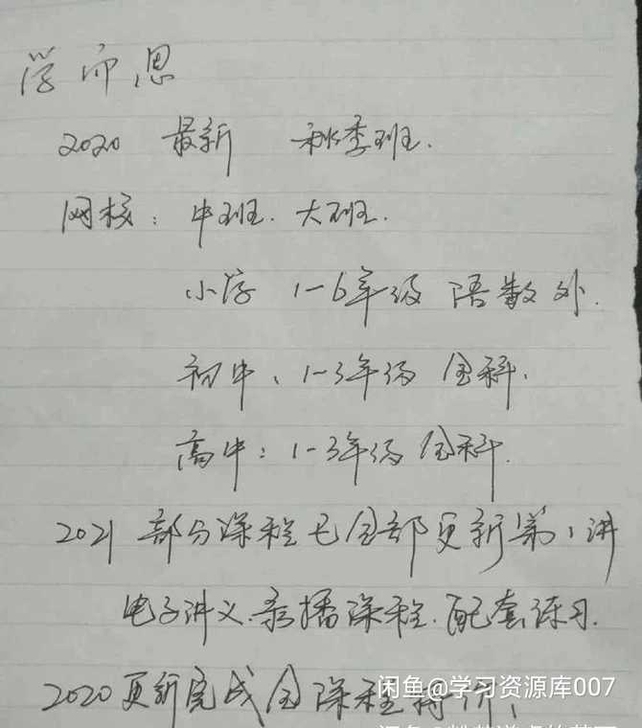 学而思
2020 最新 秋季班.
网校: 中班. 大班.
小学 1-6年级 语数外.
初中: 1-3年级 全科.
高中: 1-3年级 全科.
2021 部分课程已全部更新第1讲
电子讲义.录播课程.配套练习.
2020更新完成全课程特价!
闲鱼@学习资源库007